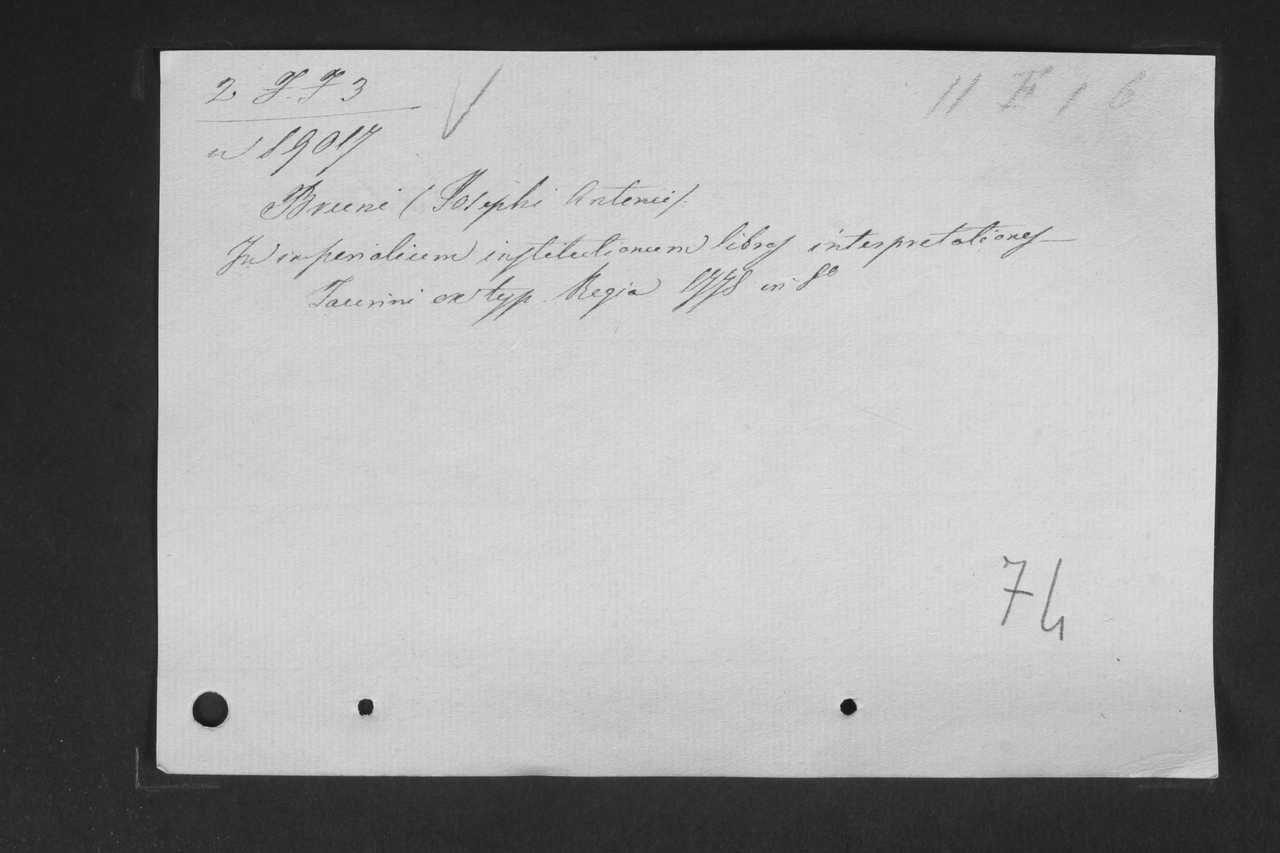 2 F. F 3
11 F 1 6
n 89017
Bruni (Josephi Antonii).
In imperialium institutionum libros interpretationes
Taurini ex typ. Regia 1778 in 8º
74